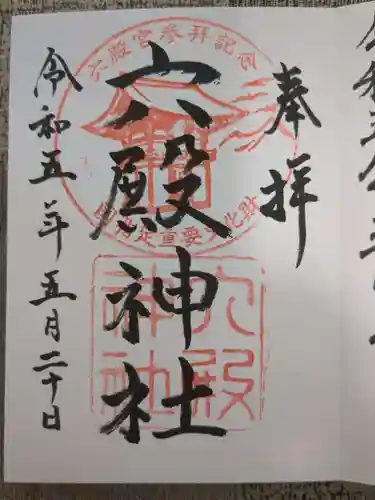 奉拝
六殿神社
令和五年五月二十日
六殿宮参拝記念
国指定重要文化財
六殿神社